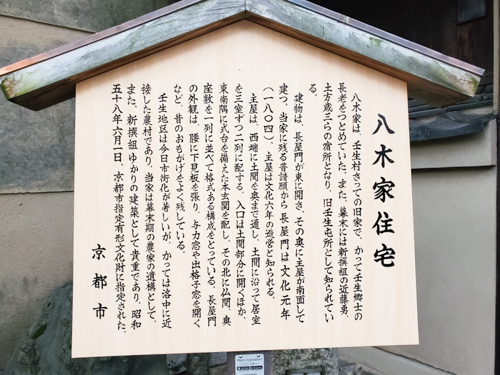 八木家住宅
八木家は、壬生村きっての旧家で、かつて壬生郷士の
長老をつとめていた。また、幕末には新撰組の近藤勇、
土方歳三らの宿所となり、旧壬生屯所として知られてい
る。
建物は、長屋門が東に開き、その奥に主屋が南面して
建つ。当家に残る普請願から長屋門は文化元年
(一八〇四)、主屋は文化六年の造営と知られる。
主屋は、西端に土間を奥まで通し、土間に沿って居室
を三室ずつ二列に配する。入口は土間部分に開くほか、
東南隅に式台を備えた本玄関を配し、その北に仏間、奥
座敷を一列に並べて格式ある構成をとっている。長屋門
の外観は、腰に下見板を張り、与力窓や出格子窓を開く
など、昔のおもかげをよく残している。
壬生地区は今日市街化が著しいが、かつては洛中に近
接した農村であり、当家は幕末期の農家の遺構として
また、新撰組ゆかりの建築として貴重であり、昭和
五十八年六月一日、京都市指定有形文化財に指定された。
京都市